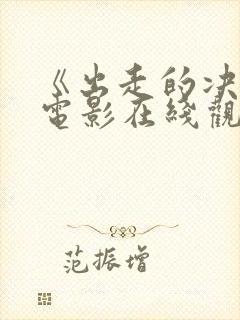 《出走的决
電影在綫觀
范振增